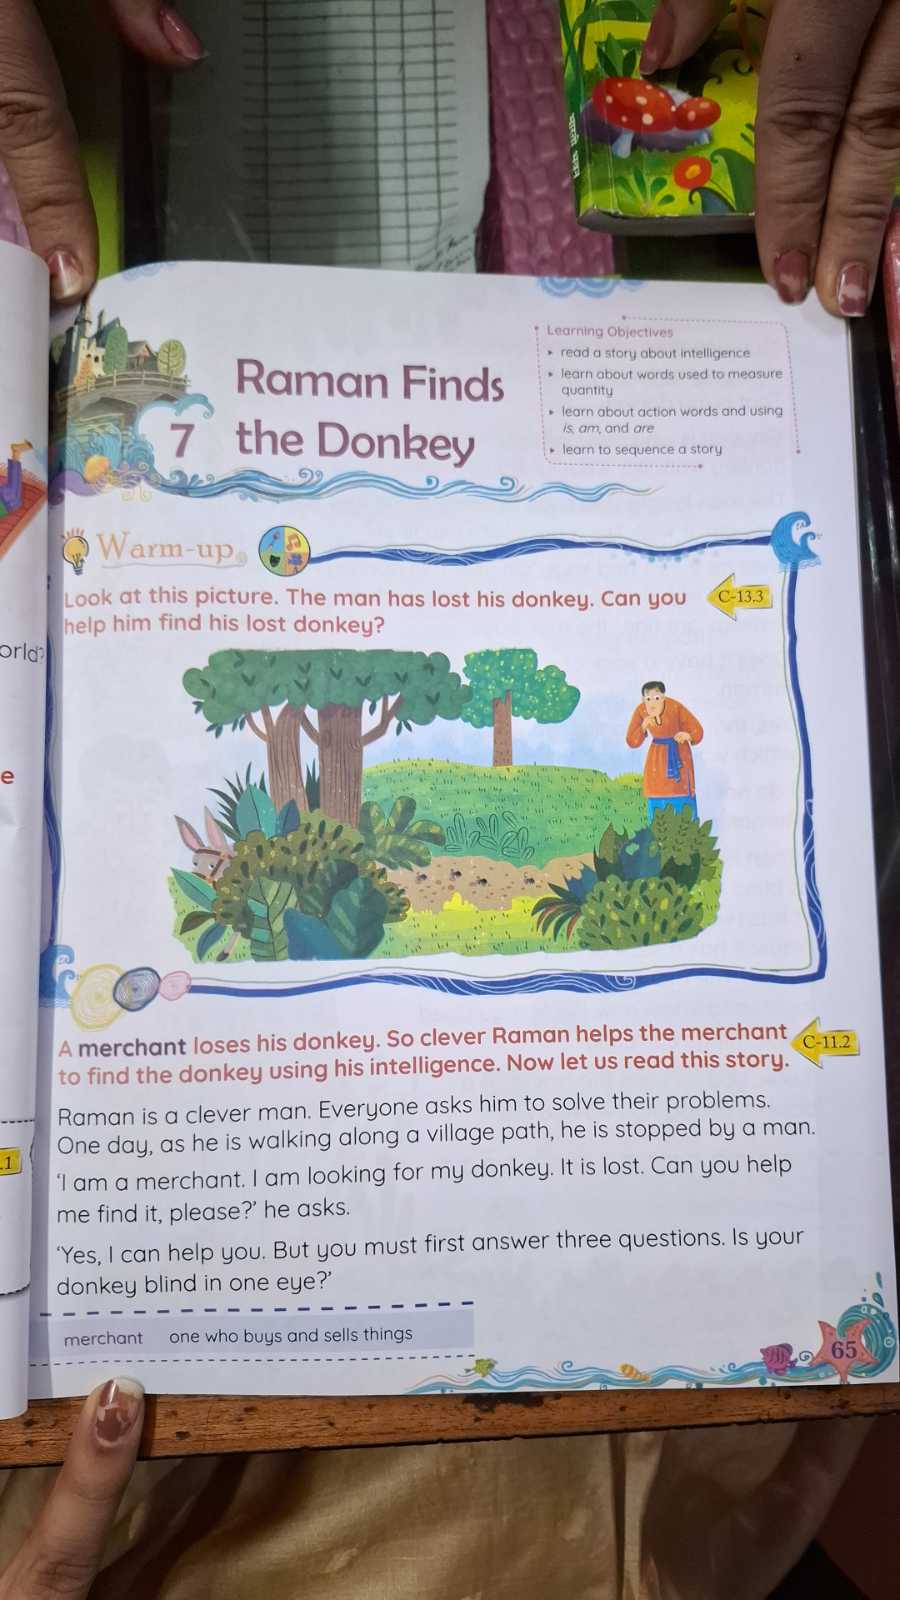 Raman Finds
7 the Donkey
Learning Objectives
read a story about intelligence
learn about words used to measure
quantity
learn about action words and using
is, am, and are
learn to sequence a story
Warm-up
Look at this picture. The man has lost his donkey. Can you
help him find his lost donkey?
C-13.3
A merchant loses his donkey. So clever Raman helps the merchant
to find the donkey using his intelligence. Now let us read this story.
C-11.2
Raman is a clever man. Everyone asks him to solve their problems.
One day, as he is walking along a village path, he is stopped by a man.
‘I am a merchant. I am looking for my donkey. It is lost. Can you help
me find it, please?’ he asks.
‘Yes, I can help you. But you must first answer three questions. Is your
donkey blind in one eye?’
merchant one who buys and sells things
65
orld?
e
.1